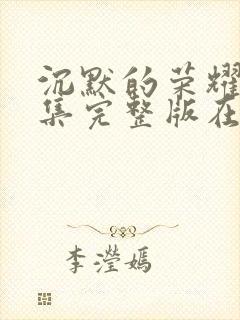 沉默的荣耀
集完整版在
李滢嫣